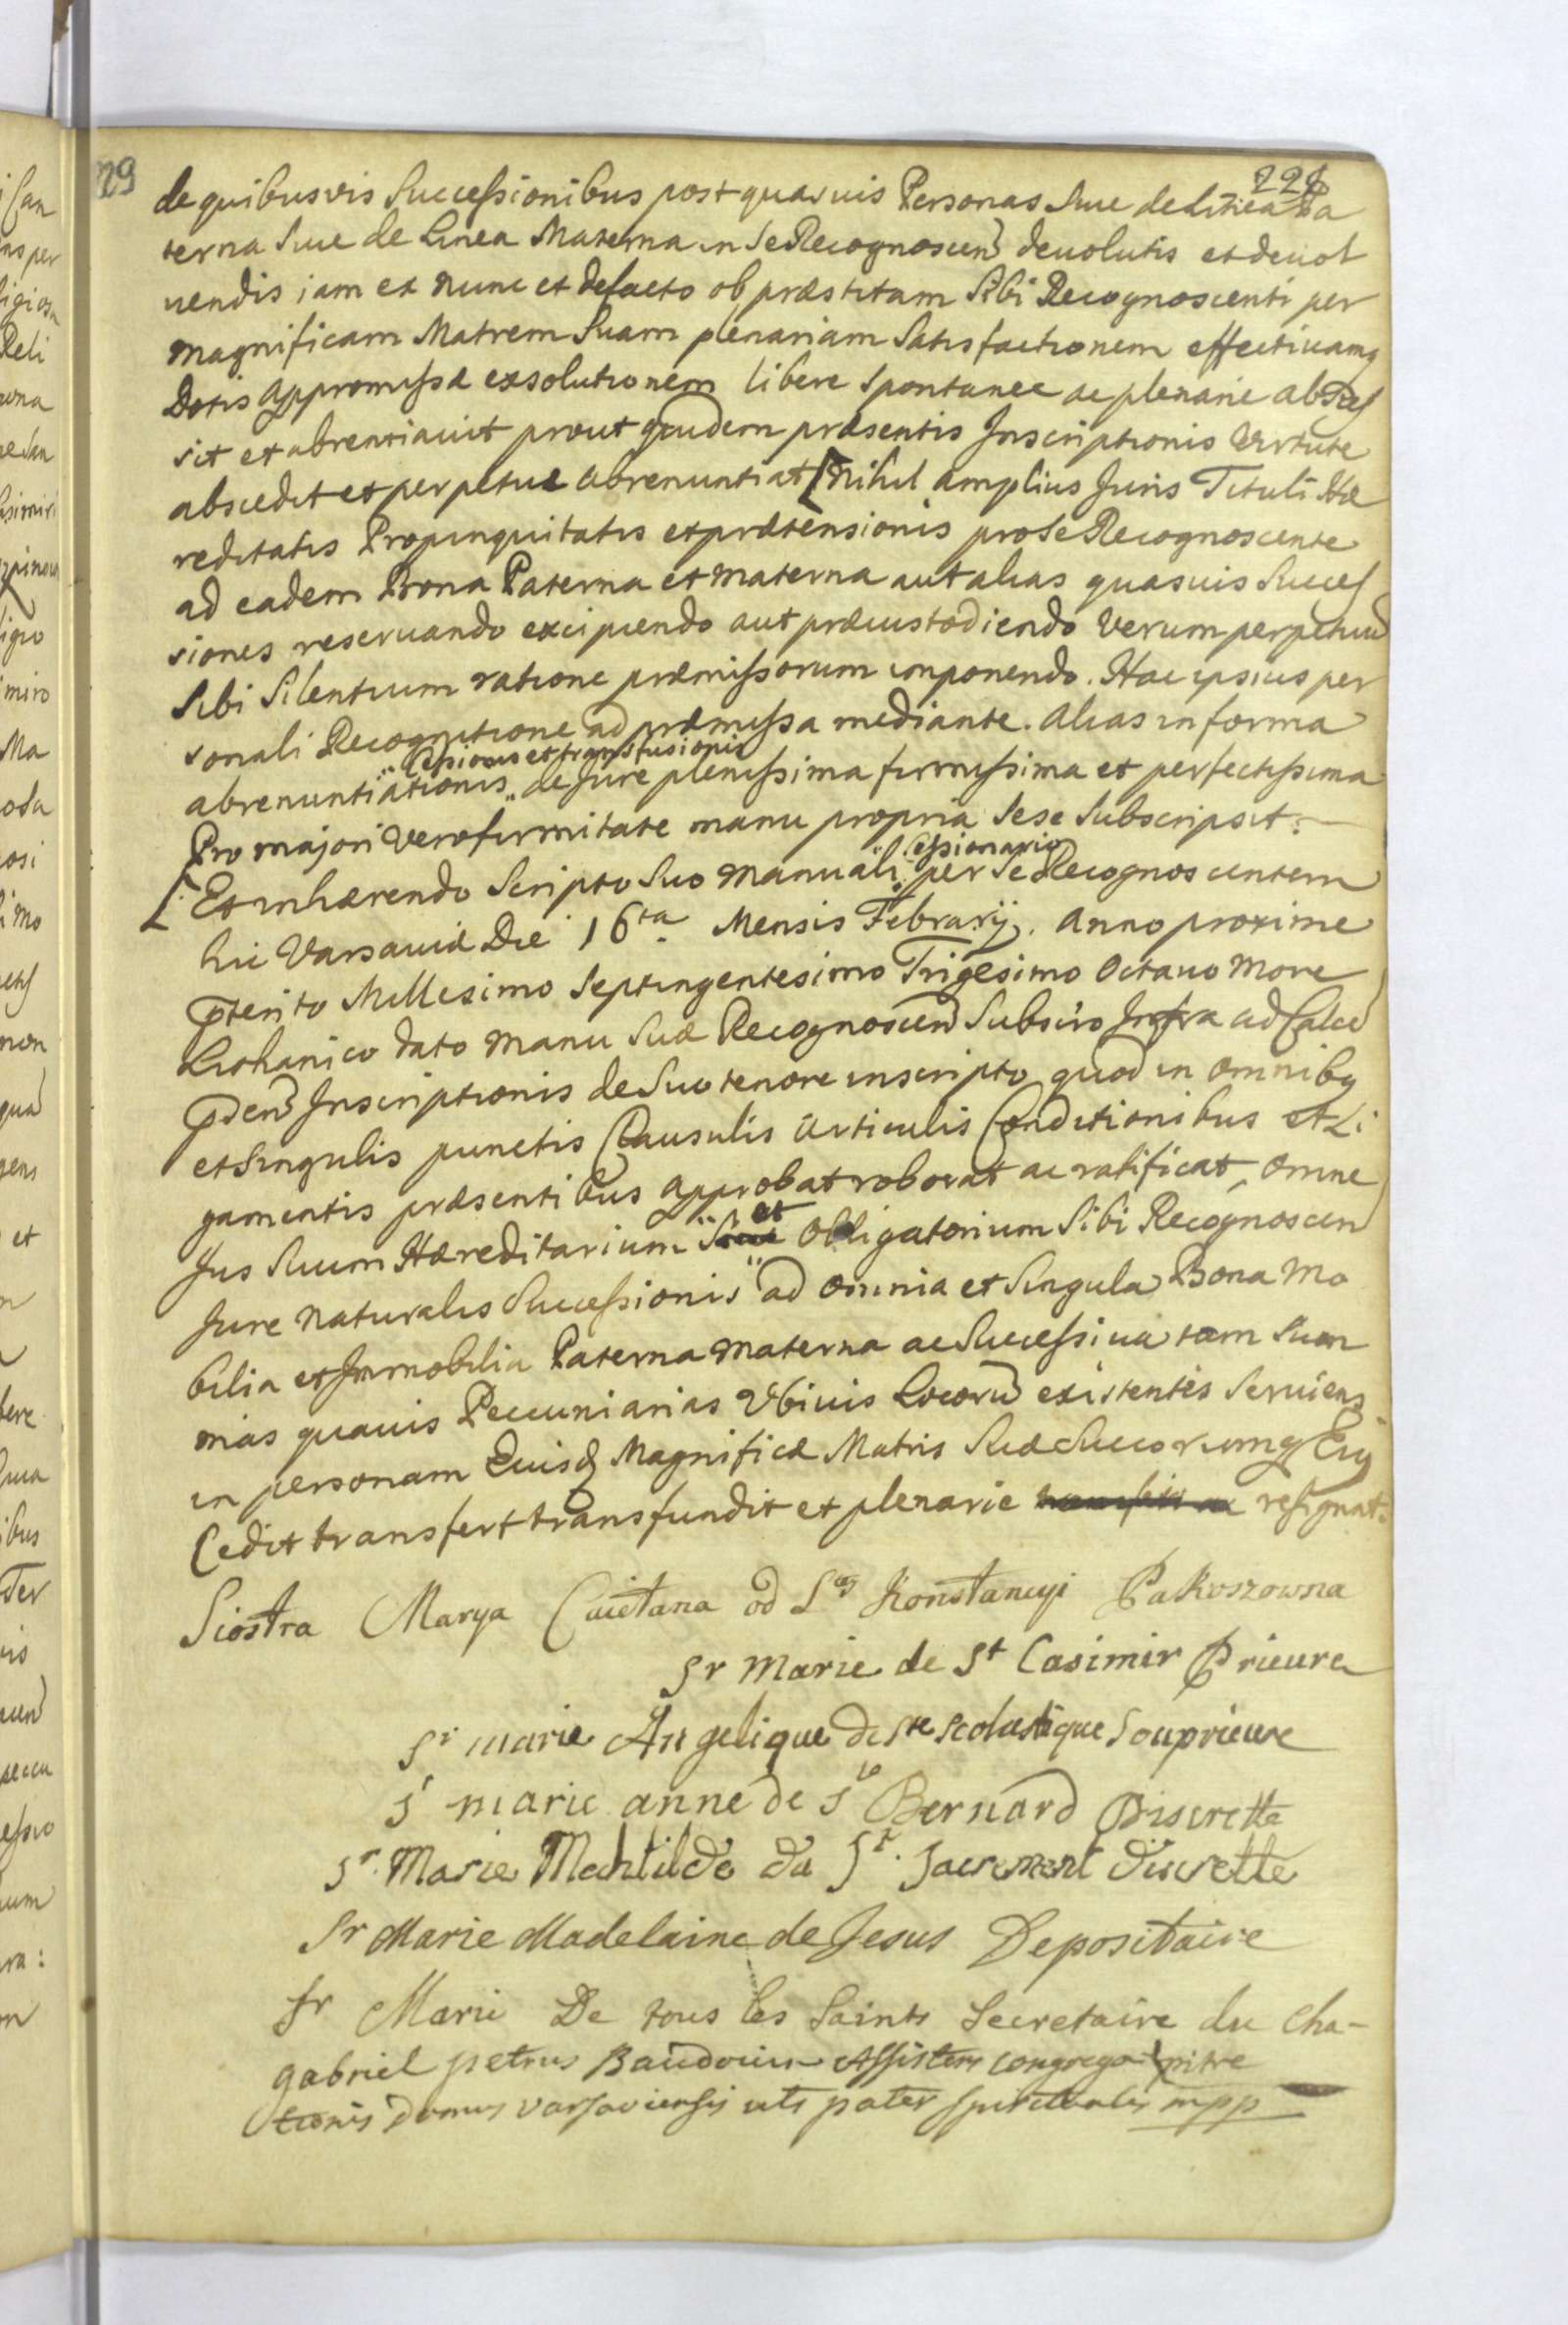 29
228
de quibusvis Successionibus post quasuis Personas Siue de Linea Pa
terna Siue de Linea Materna in Se Recognoscen deuolutis et deuol
uendis iam ex nunc et defacto ob præstitam Sibi Recognoscenti per
Magnificam Matrem Suam plenariam Satisfactionem effectiuamq
Dotis appromissæ exsolutionem libere Spontanee ac plenarie abs
sit et abrentiauit prout quidem præsentis Inscriptionis Virtute
abscedit et perpetue abrenuntiat [Nihil amplius Juris Tituli Hæ
reditatis Propinquitatis et prætensionis pro Se Recognoscente
ad eadem Bona Paterna et Materna aut alias quasuis Succes
siones reseruando excipiendo aut præcustodiendo Verum perpetuu
Sibi Silentium ratione præmissorum imponendo. Hac ipsius per
sonali Recognitione ad præmissa mediante. Alias in forma
Cessionis et transfusionis
abrenuntiationis „ de Jure plenissima firmissima et perfectissima
Pro majori Vero firmitate manu propria Sese Subscripsit:
Cessionario
[Et inhærendo Scripto Suo Manuali „ per Se Recognoscentem
hic Varsaviæ Die 16ta Mensis Febrarij. Anno proxime
pterito Millesimo Septingentesimo Trigesimo Octauo More
Lithanico dato Manu Suæ Recognoscen Subscro Infra ad Calce
pden Inscriptionis de Suo tenore inscripto quod in omnibq
et Singulis punctis Clausulis Articulis Conditionibus et Li
gamentis præsentibus approbat roborat ac ratificat, omne
et
Jus Suum Hæreditarium „ Obligatorium Sibi Recognoscen
Jure Naturalis Successionis „ ad Omnia et Singula Bona Mo
bilia et Immobilia Paterna Materna ac Successiua tam Sum
mas quauis Pecuniarias Vbiuis Locoru existentes Seruiens
in personam Eiusd Magnificæ Matris Suæ Succorumq Eiq
Cedit transfert transfundit et plenarie resignat.
Siostra Marya Caietana od S Konstancyi Pakoszowna
Sr Marie de St Casimir Prieure
Sr marie Angelique de Ste scolastique Souprieure
Sr marie anne de St Bernard Discrette
Sr. Marie Mechtilde du St. Sacrement discrette
Sr Marie Madelaine de Jesus Depositaire
Sr Marie De tous les Saints Secretaire du Cha-
pitre
gabriel petrus Baudouin Assistens congrega
tionis Domus varsaviensis uti pater spiritualis mpp